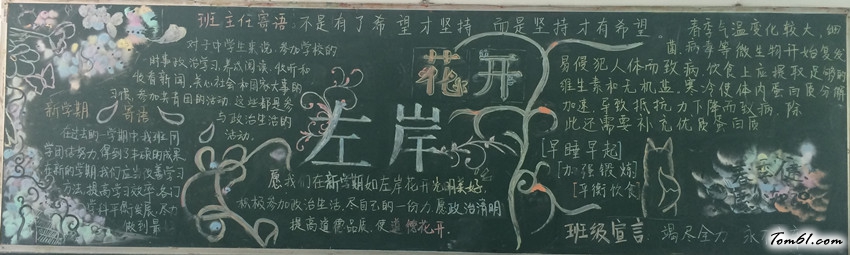 班主任寄语：不是有了希望才坚持 而是坚持才有希望
对于中学生来说，参加学校的
时事政治学习，养成阅读、收听和
收看新闻，关心社会和国家大事的
习惯，参加共青团的活动，这些都是参
与政治生活的
活动。
新学期
寄语
在过去的一学期中，我班同
学团结努力，得到了丰硕的成果
在新的学期我们应当改善学习
方法，提高学习效率，各门
学科平衡发展，尽力
做到最
左岸
花开
愿我们在新学期如左岸花开光明美好。
积极参加政治生活，尽自己的一份力，愿政治清明
提高道德品质，使道德花开。
春季气温变化较大，细
菌、病毒等微生物开始复发
易侵犯人体而致病，饮食上应摄取足够的
维生素和无机盐。寒冷使体内蛋白质分解
加速，导致抵抗力下降而致病，除
此还需要补充优质蛋白质
早睡早起
加强锻炼
平衡饮食
班级宣言：竭尽全力 永
Tom61.com